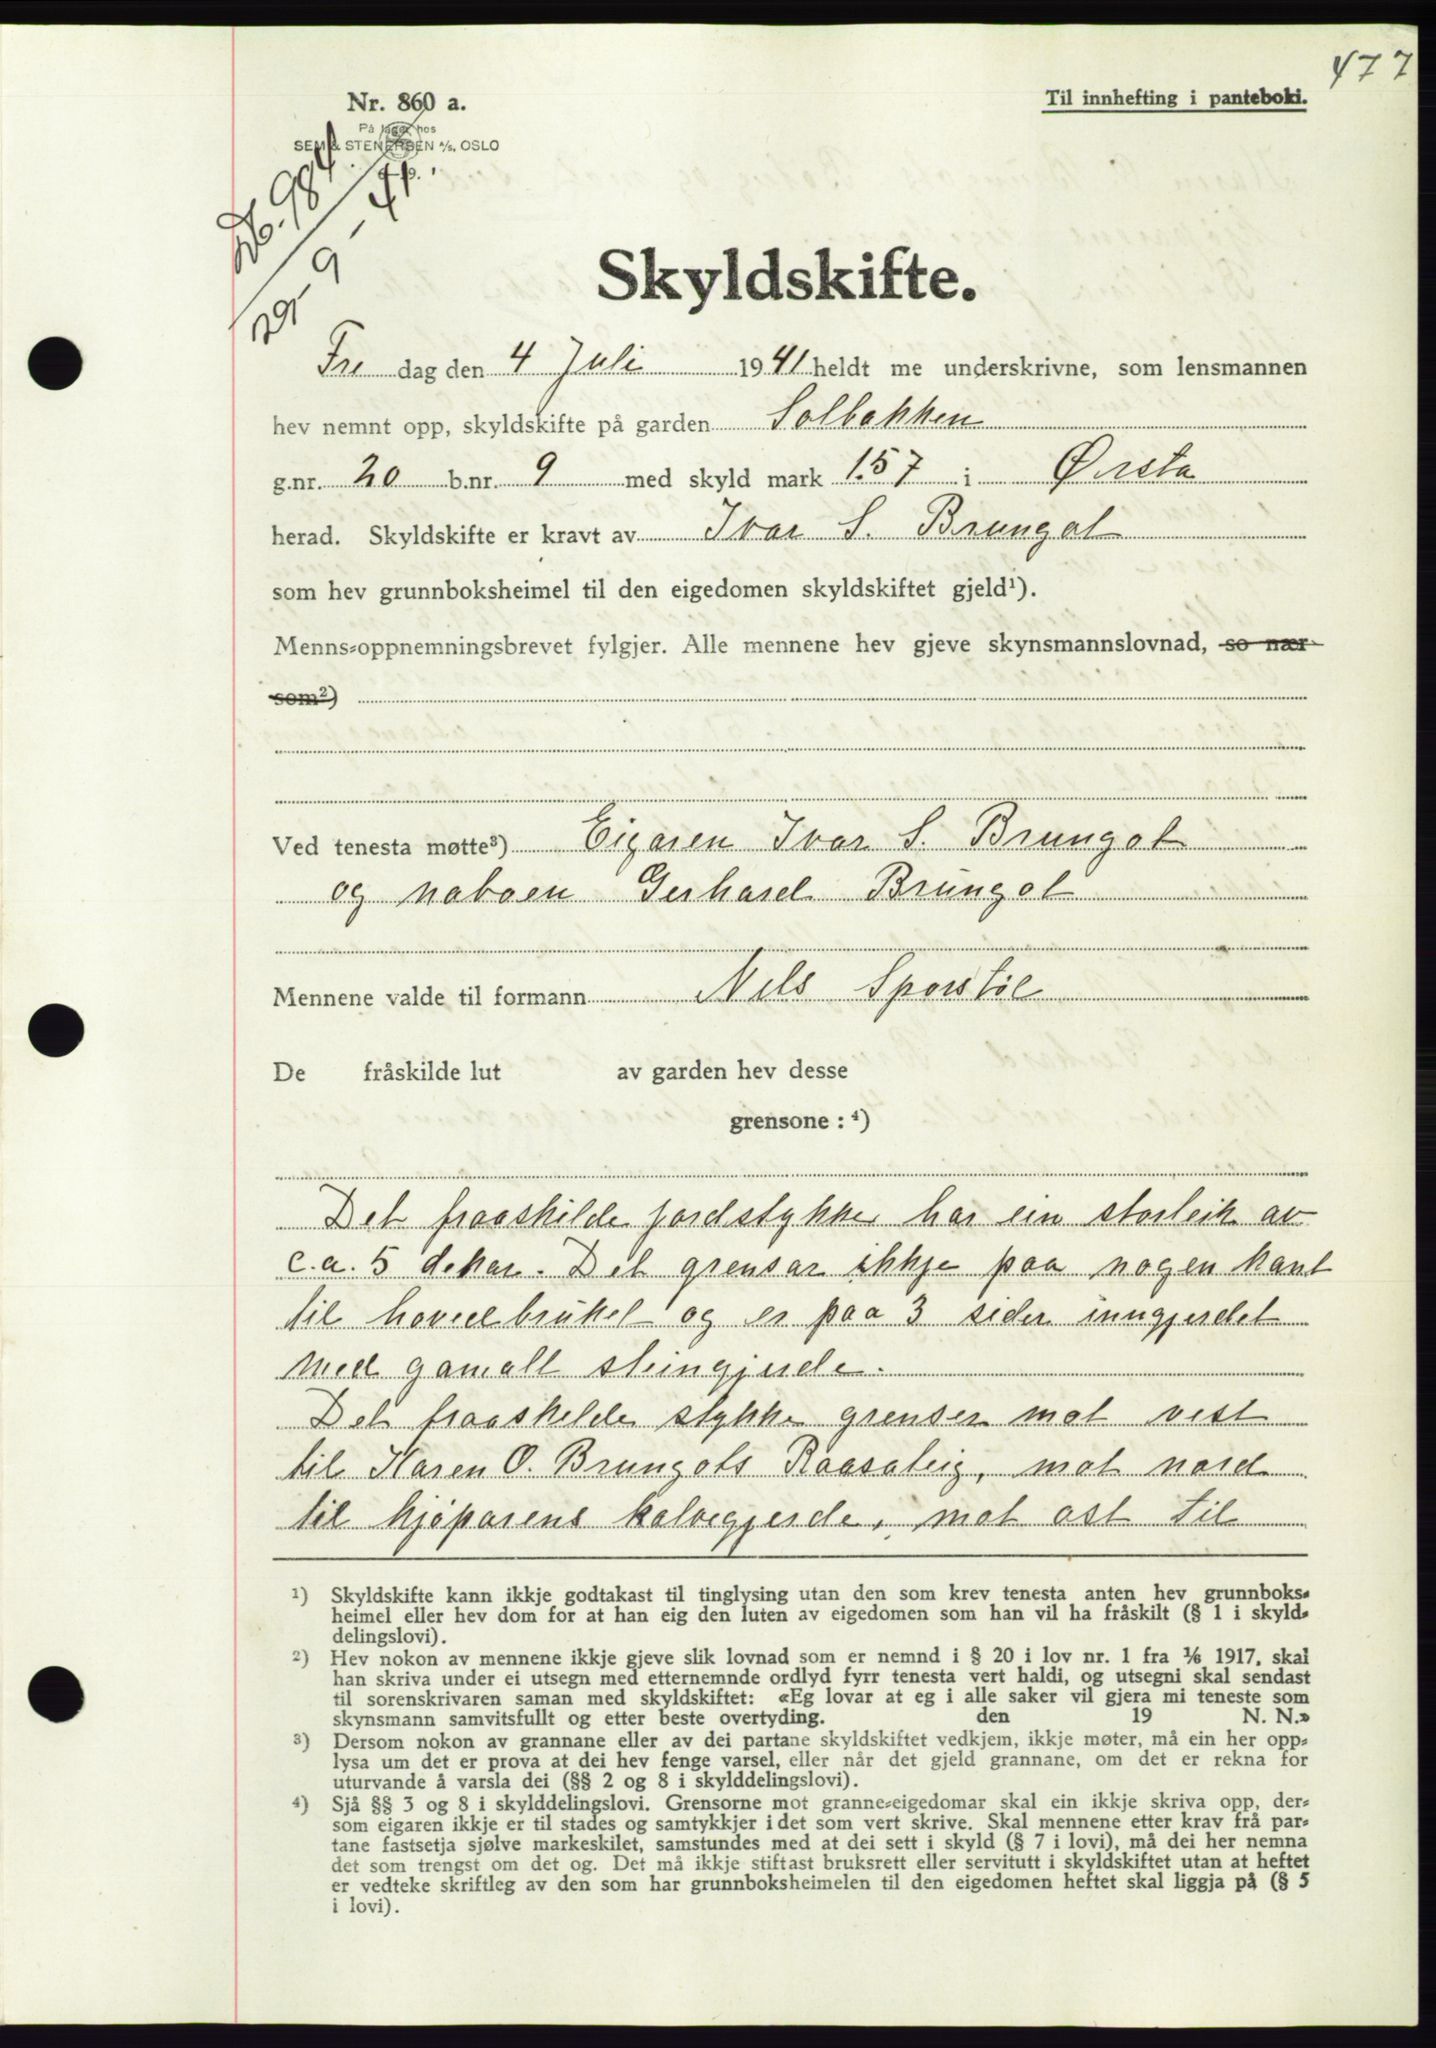 477
Nr. 860 a.
Til innhefting i panteboki.
På lager hos
SEM & STENERSEN A/S, OSLO
Db. 984
29-9-41.
Skyldskifte.
Fre dag den 4 Juli 1941 heldt me underskrivne, som lensmannen
hev nemnt opp, skyldskifte på garden Solbakken
g.nr. 20 b.nr. 9 med skyld mark 1.57 i Ørsta
herad. Skyldskifte er kravt av Ivar S. Brungot
som hev grunnboksheimel til den eigedomen skyldskiftet gjeld¹).
Menns-oppnemningsbrevet fylgjer. Alle mennene hev gjeve skynsmannslovnad, so nær
som²)
Ved tenesta møtte³) Eigaren Ivar S. Brungot
og naboen Gerhard Brungot
Mennene valde til formann Nils Sporstöl
De fråskilde lut av garden hev desse
grensone : ⁴)
Det fraaskilde jordstykke har ein storleik av
c.a. 5 dekar. Det grensar ikkje paa nogen kant
til hovedbruket og er paa 3 sider inngjerdet
med gamalt steingjerde.
Det fraaskilde stykke grenser mot vest
til Karen O. Brungots Raasateig, mot nord
til kjöparens kalvegjerde, mot ost til
¹) Skyldskifte kann ikkje godtakast til tinglysing utan den som krev tenesta anten hev grunnboks-
heimel eller hev dom for at han eig den luten av eigedomen som han vil ha fråskilt (§ 1 i skyld-
delingslovi).
²) Hev nokon av mennene ikkje gjeve slik lovnad som er nemnd i § 20 i lov nr. 1 fra 1/6 1917, skal
han skriva under ei utsegn med etternemnde ordlyd fyrr tenesta vert haldi, og utsegni skal sendast
til sorenskrivaren saman med skyldskiftet: «Eg lovar at eg i alle saker vil gjera mi teneste som
skynsmann samvitsfullt og etter beste overtyding. den 19 N. N.»
³) Dersom nokon av grannane eller av dei partane skyldskiftet vedkjem, ikkje møter, må ein her opp-
lysa um det er prova at dei hev fenge varsel, eller når det gjeld grannane, om det er rekna for
uturvande å varsla dei (§§ 2 og 8 i skylddelingslovi).
⁴) Sjå §§ 3 og 8 i skylddelingslovi. Grensorne mot granne-eigedomar skal ein ikkje skriva opp, der-
som eigaren ikkje er til stades og samtykkjer i det som vert skrive. Skal mennene etter krav frå par-
tane fastsetja sjølve markeskilet, samstundes med at dei sett i skyld (§ 7 i lovi), må dei her nemna
det som trengst om det og. Det må ikkje stiftast bruksrett eller servitutt i skyldskiftet utan at heftet
er vedteke skriftleg av den som har grunnboksheimelen til den eigedomen heftet skal liggja på (§ 5
i lovi).